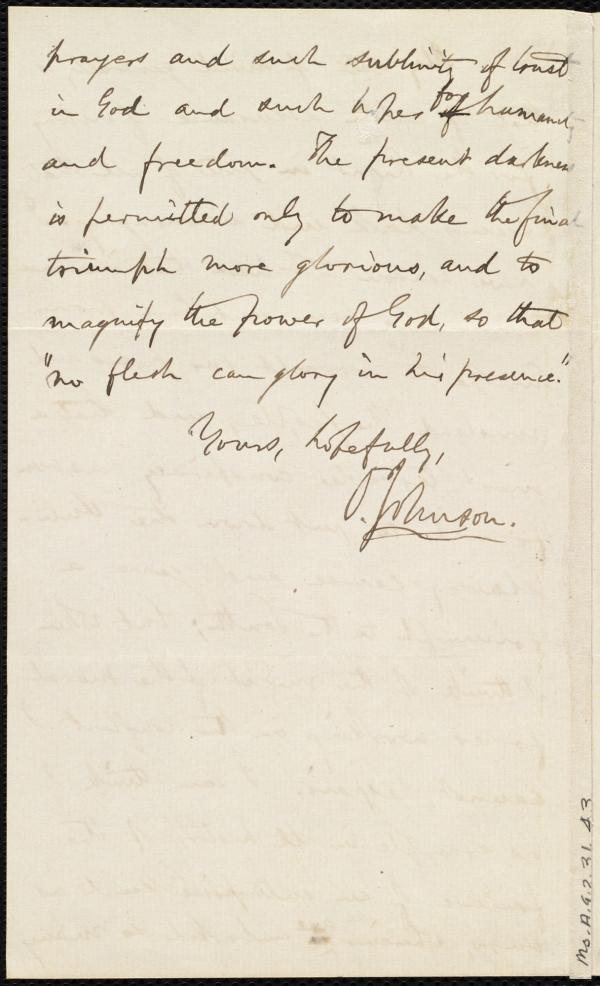 prayers and such sublimity of trust
in God and such hopes for of humanity
and freedom. The present darkness
is permitted only to make the final
triumph more glorious, and to
magnify the power of God, so that
"no flesh can glory in his presence."
Yours, hopefully,
O. Johnson.
Ms. A.9.2.31.43